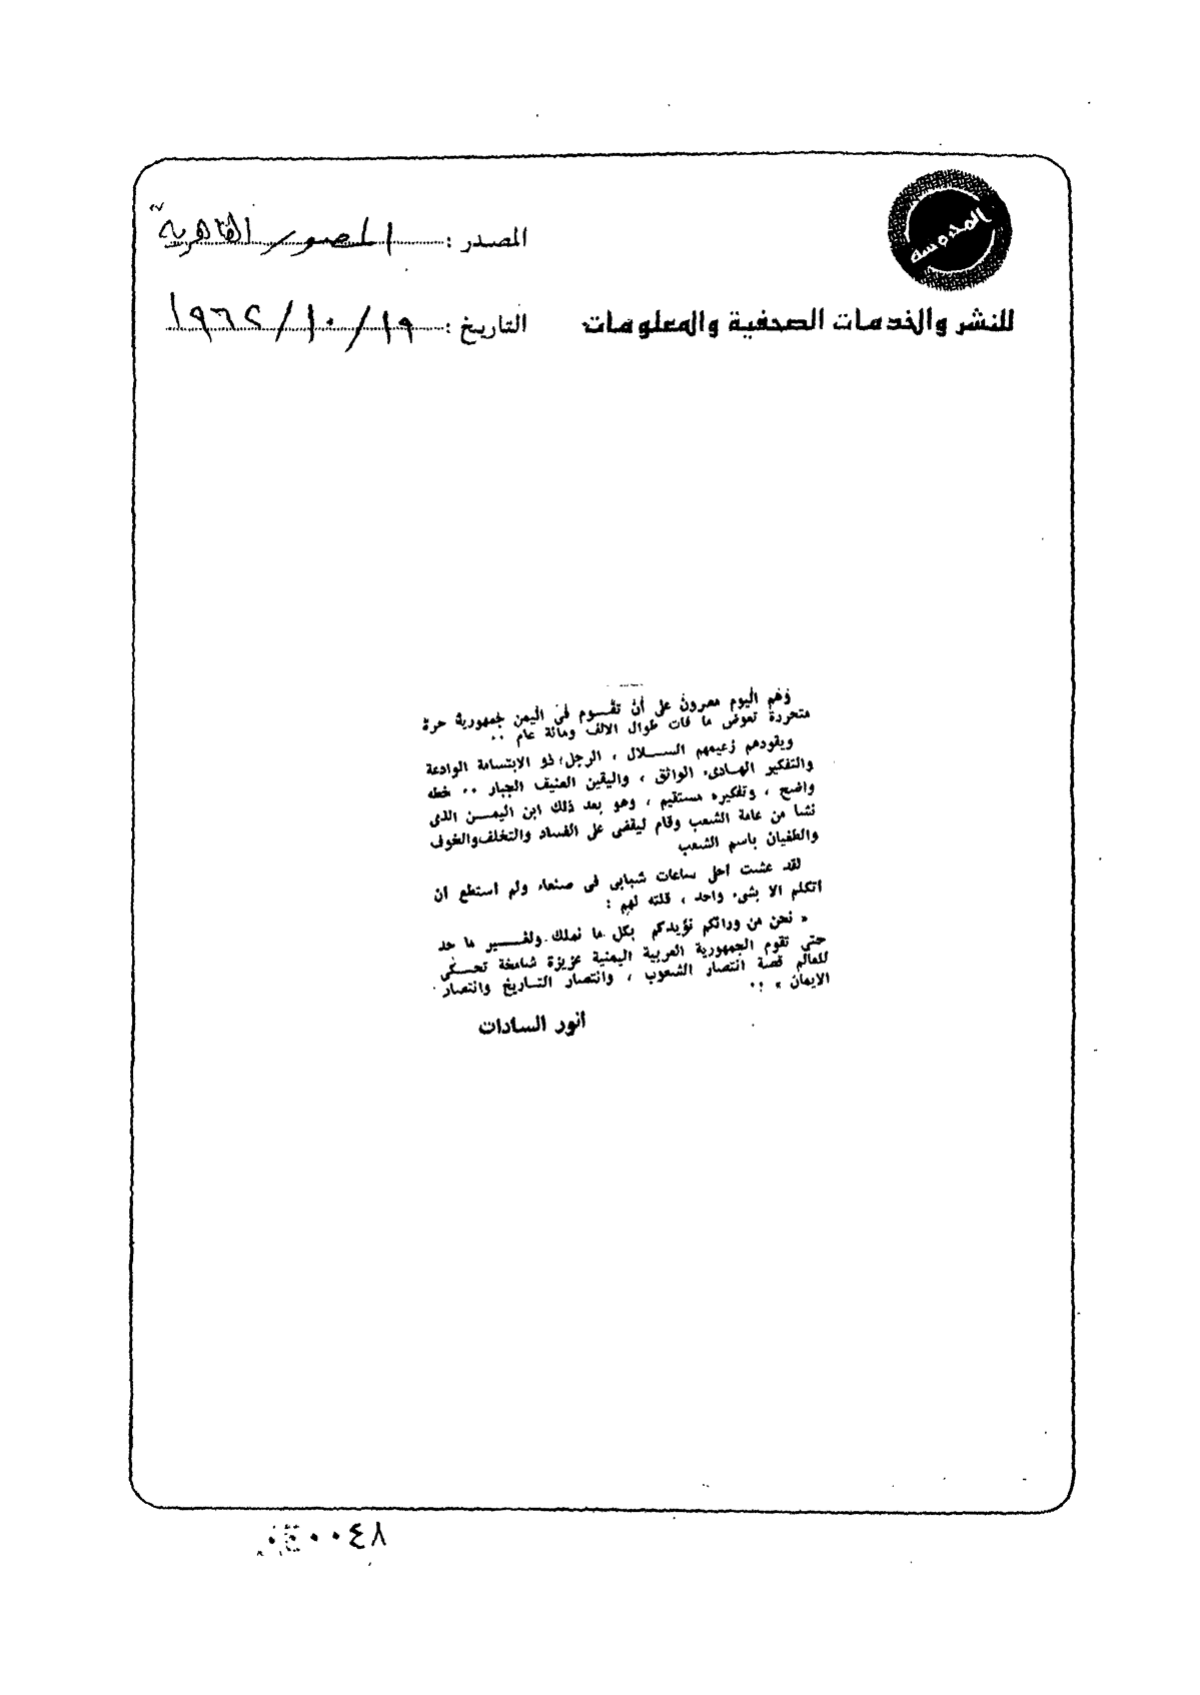 المحروسة
المصدر : المصور القاهرية
للنشر والخدمات الصحفية والمعلومات
التاريخ : ١٩/١٠/١٩٦٢
وهم اليوم مصرون على أن تقوم فى اليمن جمهورية حرة
متحررة تعوض ما فات طوال الالف ومائة عام ..
ويقودهم زعيمهم الســلال ، الرجل ذو الابتسامة الوادعة
والتفكير الهادىء الواثق ، واليقين العنيف الجبار .. خطه
واضح ، وتفكيره مستقيم ، وهو بعد ذلك ابن اليمــن الذى
نشا من عامة الشعب وقام ليقضى على الفساد والتخلف والخوف
والطغيان باسم الشعب
لقد عشت احلى ساعات شبابى فى صنعاء ولم استطع ان
اتكلم الا بشىء واحد ، قلته لهم :
« نحن من ورائكم نؤيدكم بكل ما نملك ولغــير ما حد
حتى تقوم الجمهورية العربية اليمنية عزيزة شامخة تحــكى
للعالم قصة انتصار الشعوب ، وانتصار التـاريخ وانتصار
الايمان » ..
أنور السادات
٠٠٤٨